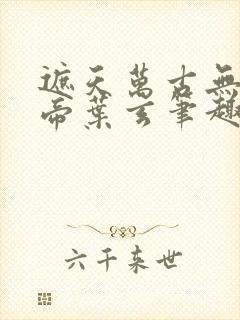 遮天萬古無
帝葉玄筆趣
六千来世